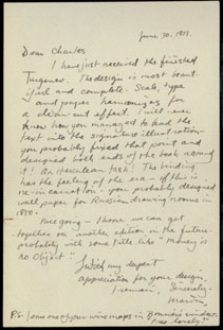 June 30, 1983.
Dear Charles
I have just received the finished
Turgenev. The design is most beaut-
iful and complete. Scale, type
and paper harmonizes for
a clean-cut effect. I will never
know how you managed to lead the
text into the signature illustration-
you probably fixed that point and
designed both ends of the book around
it! An Herculean task! The binding
has the feeling of the era - if this is
no-in cannot be - your probably designed
wall paper for Russian drawing rooms in
1850.
Once going - I hope we can get
together on another option in the future-
probably with some title like "Money is
no Object"
with my deepest
appreciation for your design,
I remain, Sincerely-
Marvin,
P.S.
lovely"